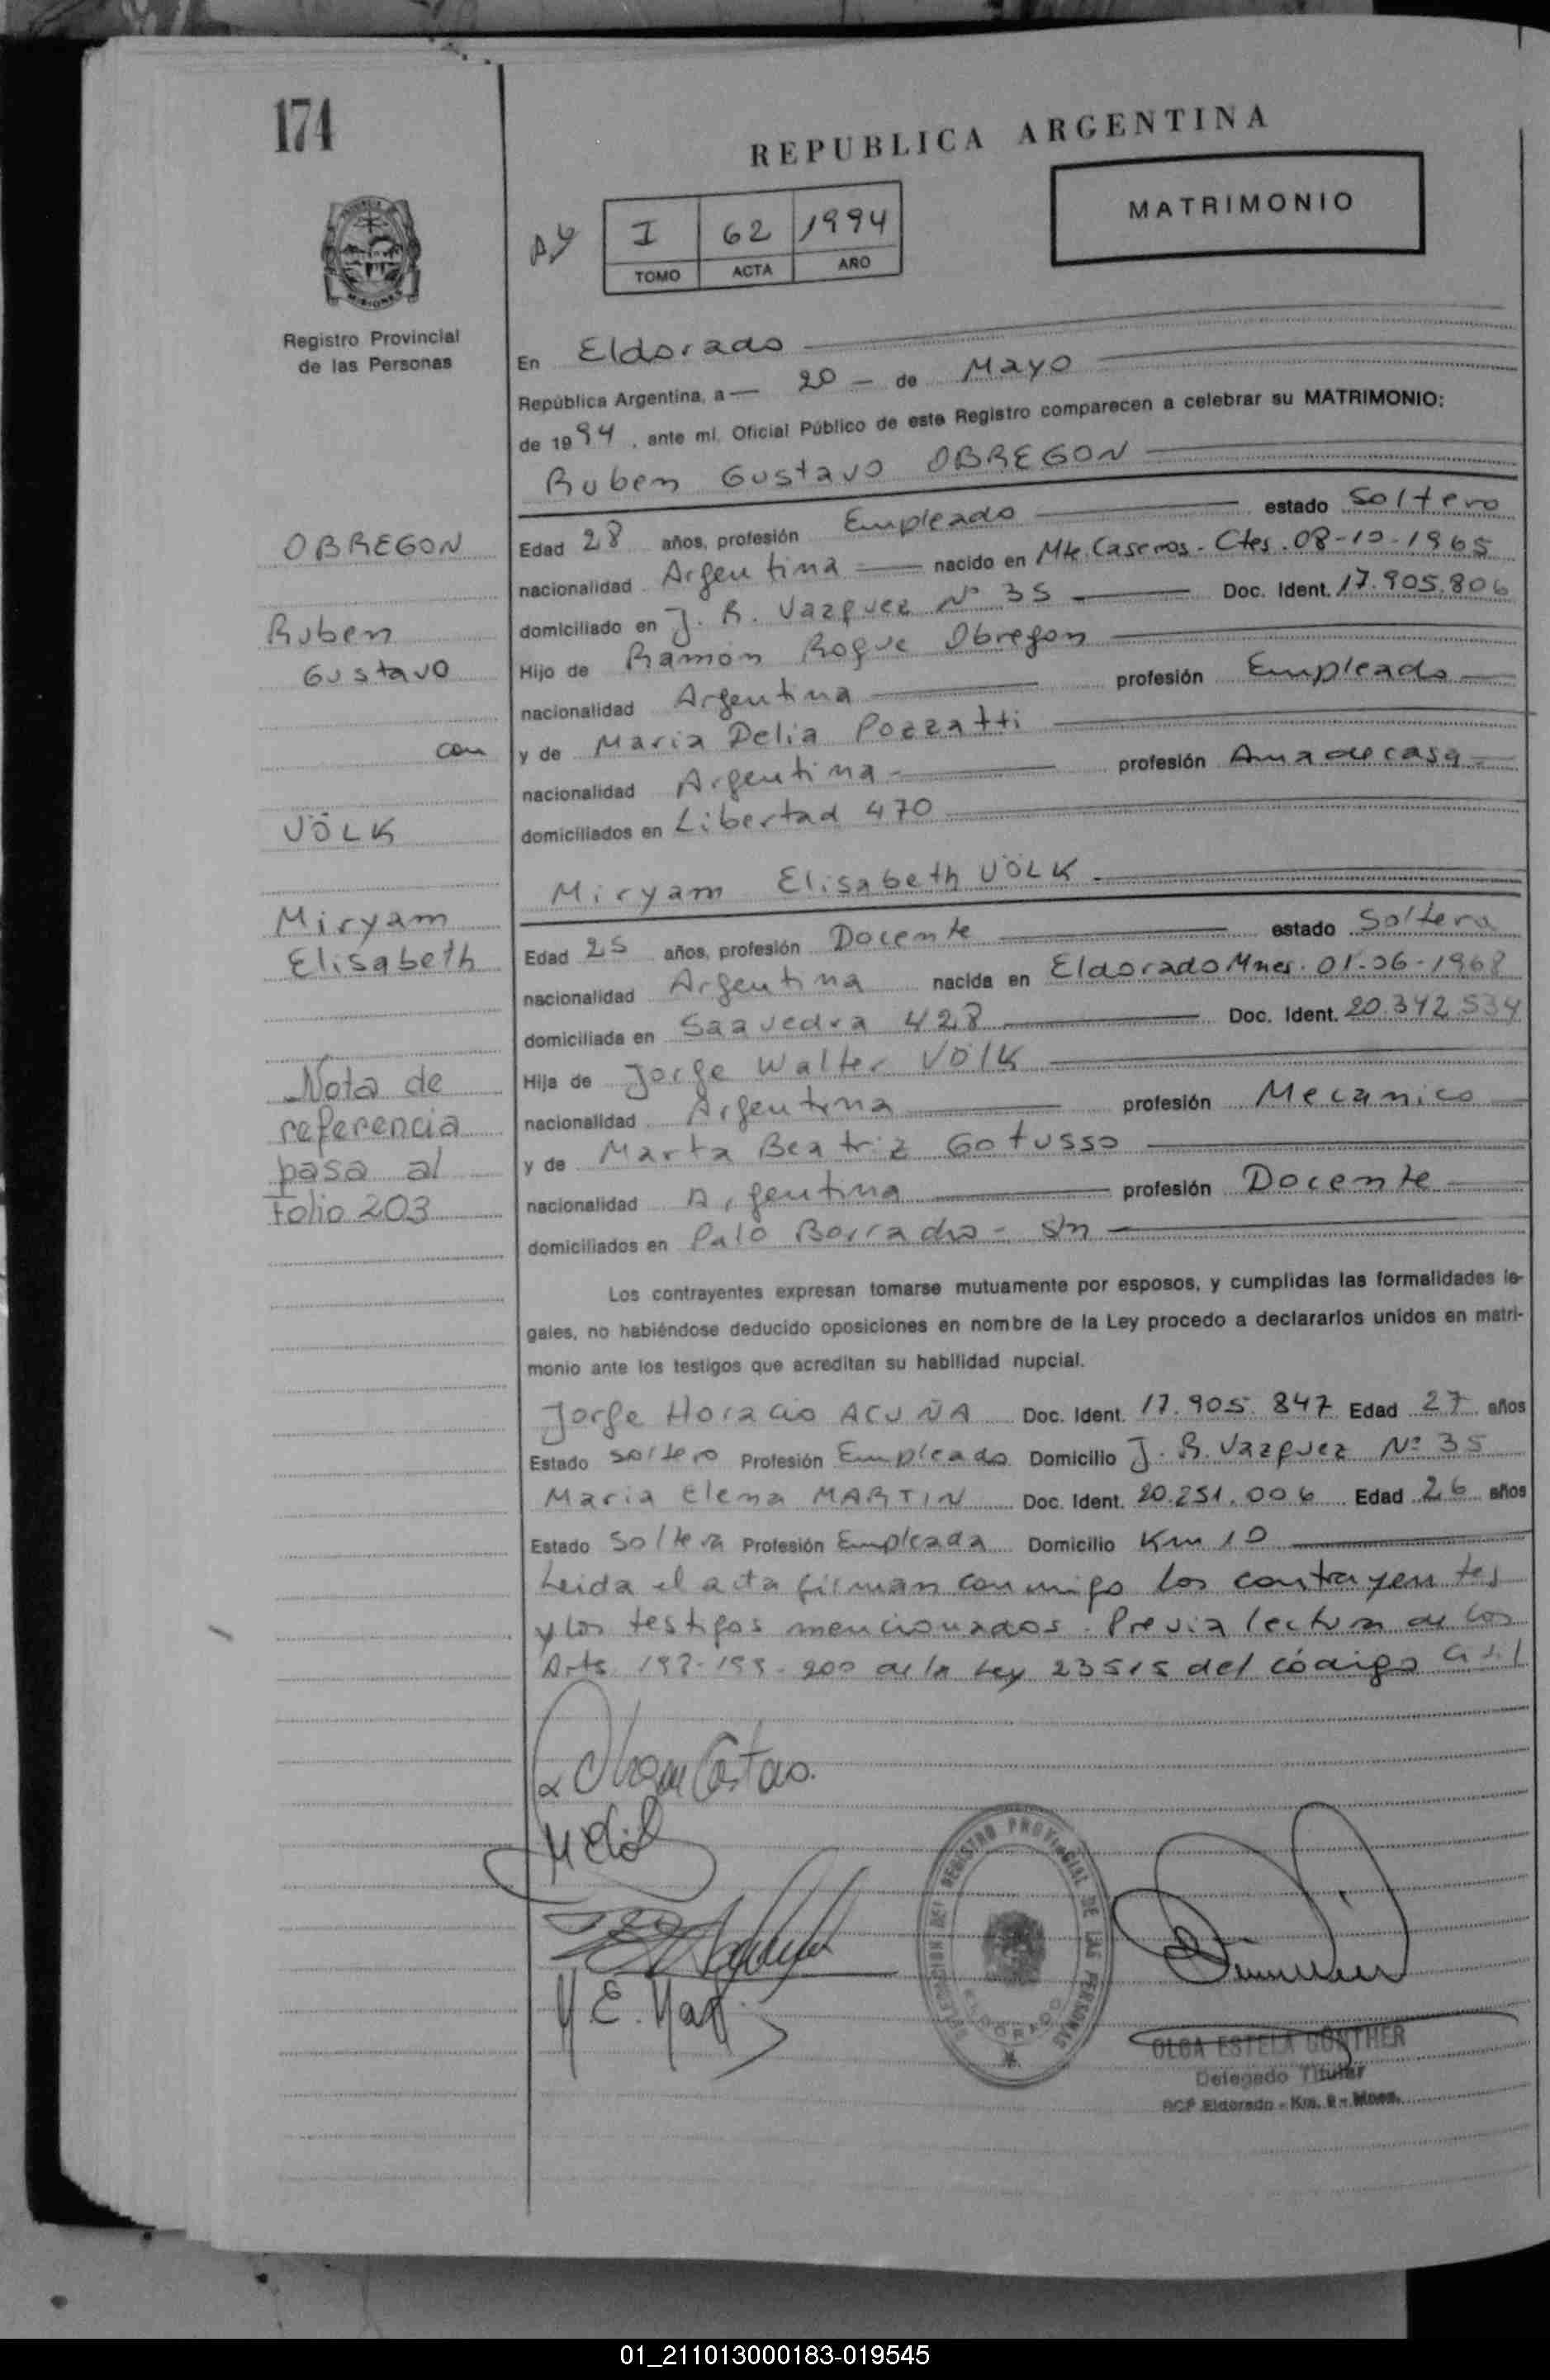 174
REPUBLICA ARGENTINA
MATRIMONIO
I 62 1994
TOMO ACTA AÑO
MISIONES
Registro Provincial
de las Personas
En Eldorado
República Argentina, a 20 de Mayo
de 1994, ante mí, Oficial Público de este Registro comparecen a celebrar su MATRIMONIO:
Ruben Gustavo OBREGON
OBREGON
Ruben
Gustavo
con
VÖLK
Miryam
Elisabeth
Nota de
referencia
pasa al
Folio 203
Edad 28 años, profesión Empleado estado Soltero
nacionalidad Argentina nacido en Mte. Caseros - Ctes. 08-10-1965
domiciliado en J. R. Vazquez Nº 35 Doc. Ident. 17.905.806
Hijo de Ramón Roque Obregon
nacionalidad Argentina profesión Empleado
y de Maria Delia Pozzatti
nacionalidad Argentina profesión Ama de casa
domiciliados en Libertad 470
Miryam Elisabeth VÖLK
Edad 25 años, profesión Docente estado Soltera
nacionalidad Argentina nacida en Eldorado Mnes. 01-06-1968
domiciliada en Saavedra 428 Doc. Ident. 20.342.534
Hija de Jorge Walter VÖlK
nacionalidad Argentina profesión Mecanico
y de Marta Beatriz Gotusso
nacionalidad Argentina profesión Docente
domiciliados en Palo Borracho - s/n
Los contrayentes expresan tomarse mutuamente por esposos, y cumplidas las formalidades le-
gales, no habiéndose deducido oposiciones en nombre de la Ley procedo a declararlos unidos en matri-
monio ante los testigos que acreditan su habilidad nupcial.
Jorge Horacio ACUÑA Doc. Ident. 17.905.847 Edad 27 años
Estado soltero Profesión Empleado Domicilio J. R. Vazquez Nº 35
Maria Elena MARTIN Doc. Ident. 20.251.006 Edad 26 años
Estado Soltera Profesión Empleada Domicilio Km 10
Leida el acta firman conmigo los contrayentes
y los testigos mencionados. Previa lectura de los
Arts. 198-199-200 de la Ley 23515 del código Civil
M. E. Mart
DELEGACION DEL REGISTRO PROVINCIAL DE LAS PERSONAS
ELDORADO
OLGA ESTELA GÜNTHER
Delegado Titular
RCP Eldorado - Km. 9 - Mnes.
01_211013000183-019545